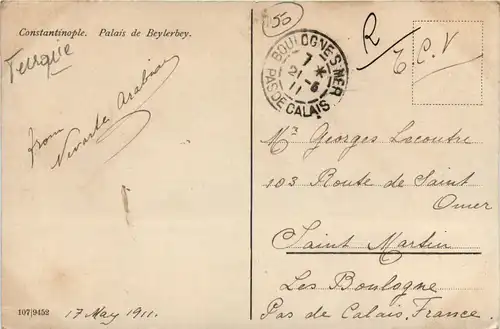 Constantinople. Palais de Beylerbey.
Turquie
from
107/9452
17 May 1911.
50
BOULOGNE-S-MER
7 *
21-5
11
PAS DE CALAIS
R
C.V
Mr Georges Lecoutre
103 Route de Saint
Omer
Saint Martin
Les Boulogne
Pas de Calais, France.